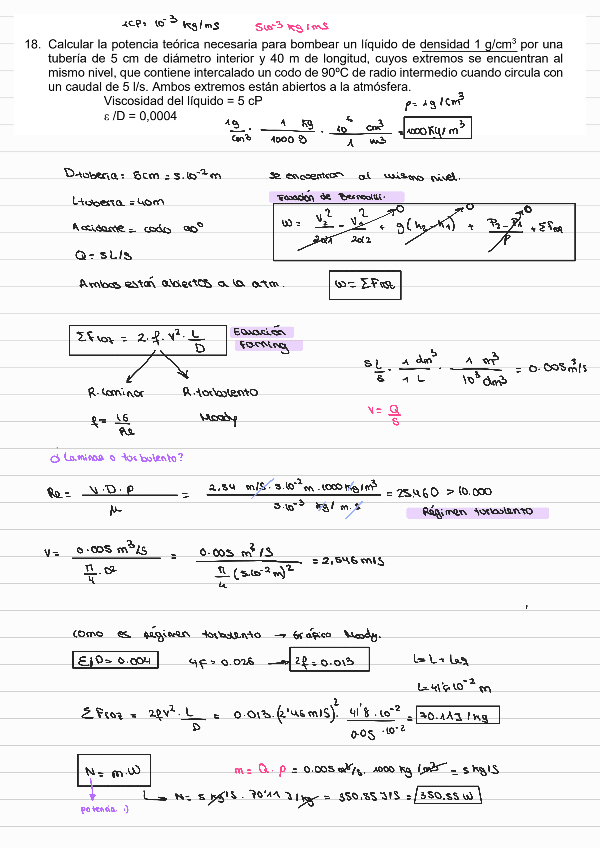 1CP = 10⁻³ kg/ms 5·10⁻³ kg/ms
18. Calcular la potencia teórica necesaria para bombear un líquido de densidad 1 g/cm³ por una
tubería de 5 cm de diámetro interior y 40 m de longitud, cuyos extremos se encuentran al
mismo nivel, que contiene intercalado un codo de 90ºC de radio intermedio cuando circula con
un caudal de 5 l/s. Ambos extremos están abiertos a la atmósfera.
Viscosidad del líquido = 5 cP
ρ = 1g/cm³
ε /D = 0,0004
1g/cm³ · 1 kg/1000 g · 10⁶ cm³/1 m³ = 1000 kg/m³
D tubería = 5cm = 5·10⁻² m se encuentran al mismo nivel.
L tubería = 40m Ecuación de Bernoulli.
Accidente = codo 90º W = V₂²/2α1 - V₁²/2α2 + g(h₂-h₁) + P₂-P₁/ρ + ΣFroz
Q = 5L/s
Ambos están abiertos a la atm. W = ΣFroz
ΣFroz = 2·f·V²·L/D Ecuación Fanning
5L/s · 1 dm³/1 L · 1 m³/10³ dm³ = 0.005 m³/s
R. laminar R. turbulento
f = 16/Re Moody V = Q/S
¿Laminar o turbulento?
Re = V·D·ρ/μ = 2,54 m/s · 5·10⁻² m · 1000 kg/m³ / 5·10⁻³ kg/m·s = 25.460 > 10.000
Régimen turbulento
V = 0.005 m³/s / π/4 · D² = 0.005 m³/s / π/4 (5·10⁻² m)² = 2,546 m/s
Como es régimen turbulento → Gráfico Moody.
E/D = 0.004 4f = 0.026 → 2f = 0.013 L = L + Leq
L = 41'8·10⁻² m
ΣFroz = 2fV² · L/D = 0.013·(2'46 m/s)² · 41'8·10⁻²/0.05·10⁻² = 70.11 J/kg
N = m·W m = Q·ρ = 0.005 m³/s · 1000 kg/m³ = 5 kg/s
potencia :) N = 5 kg/s · 70'11 J/kg = 350.55 J/s = 350.55 W